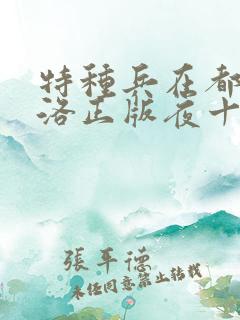 特種兵在都
洛正版夜十
張平德
未经同意禁止转载